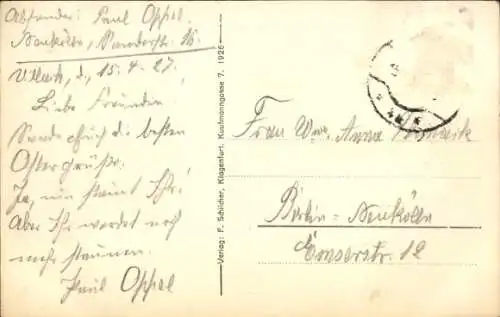 Absender: Paul Oppel.
Neukölln, Panierstr. 16.
Villach, d. 15.4.27.
Liebe Freunde!
Sende Euch die besten
Ostergrüße.
Ja, nun staunt Ihr!
Aber Ihr werdet noch
mehr staunen.
Paul Oppel
Verlag: F. Schilcher, Klagenfurt, Kaufmanngasse 7. 1926
Frau Wwe. Anna
Berlin-Neukölln
Emserstr. 12